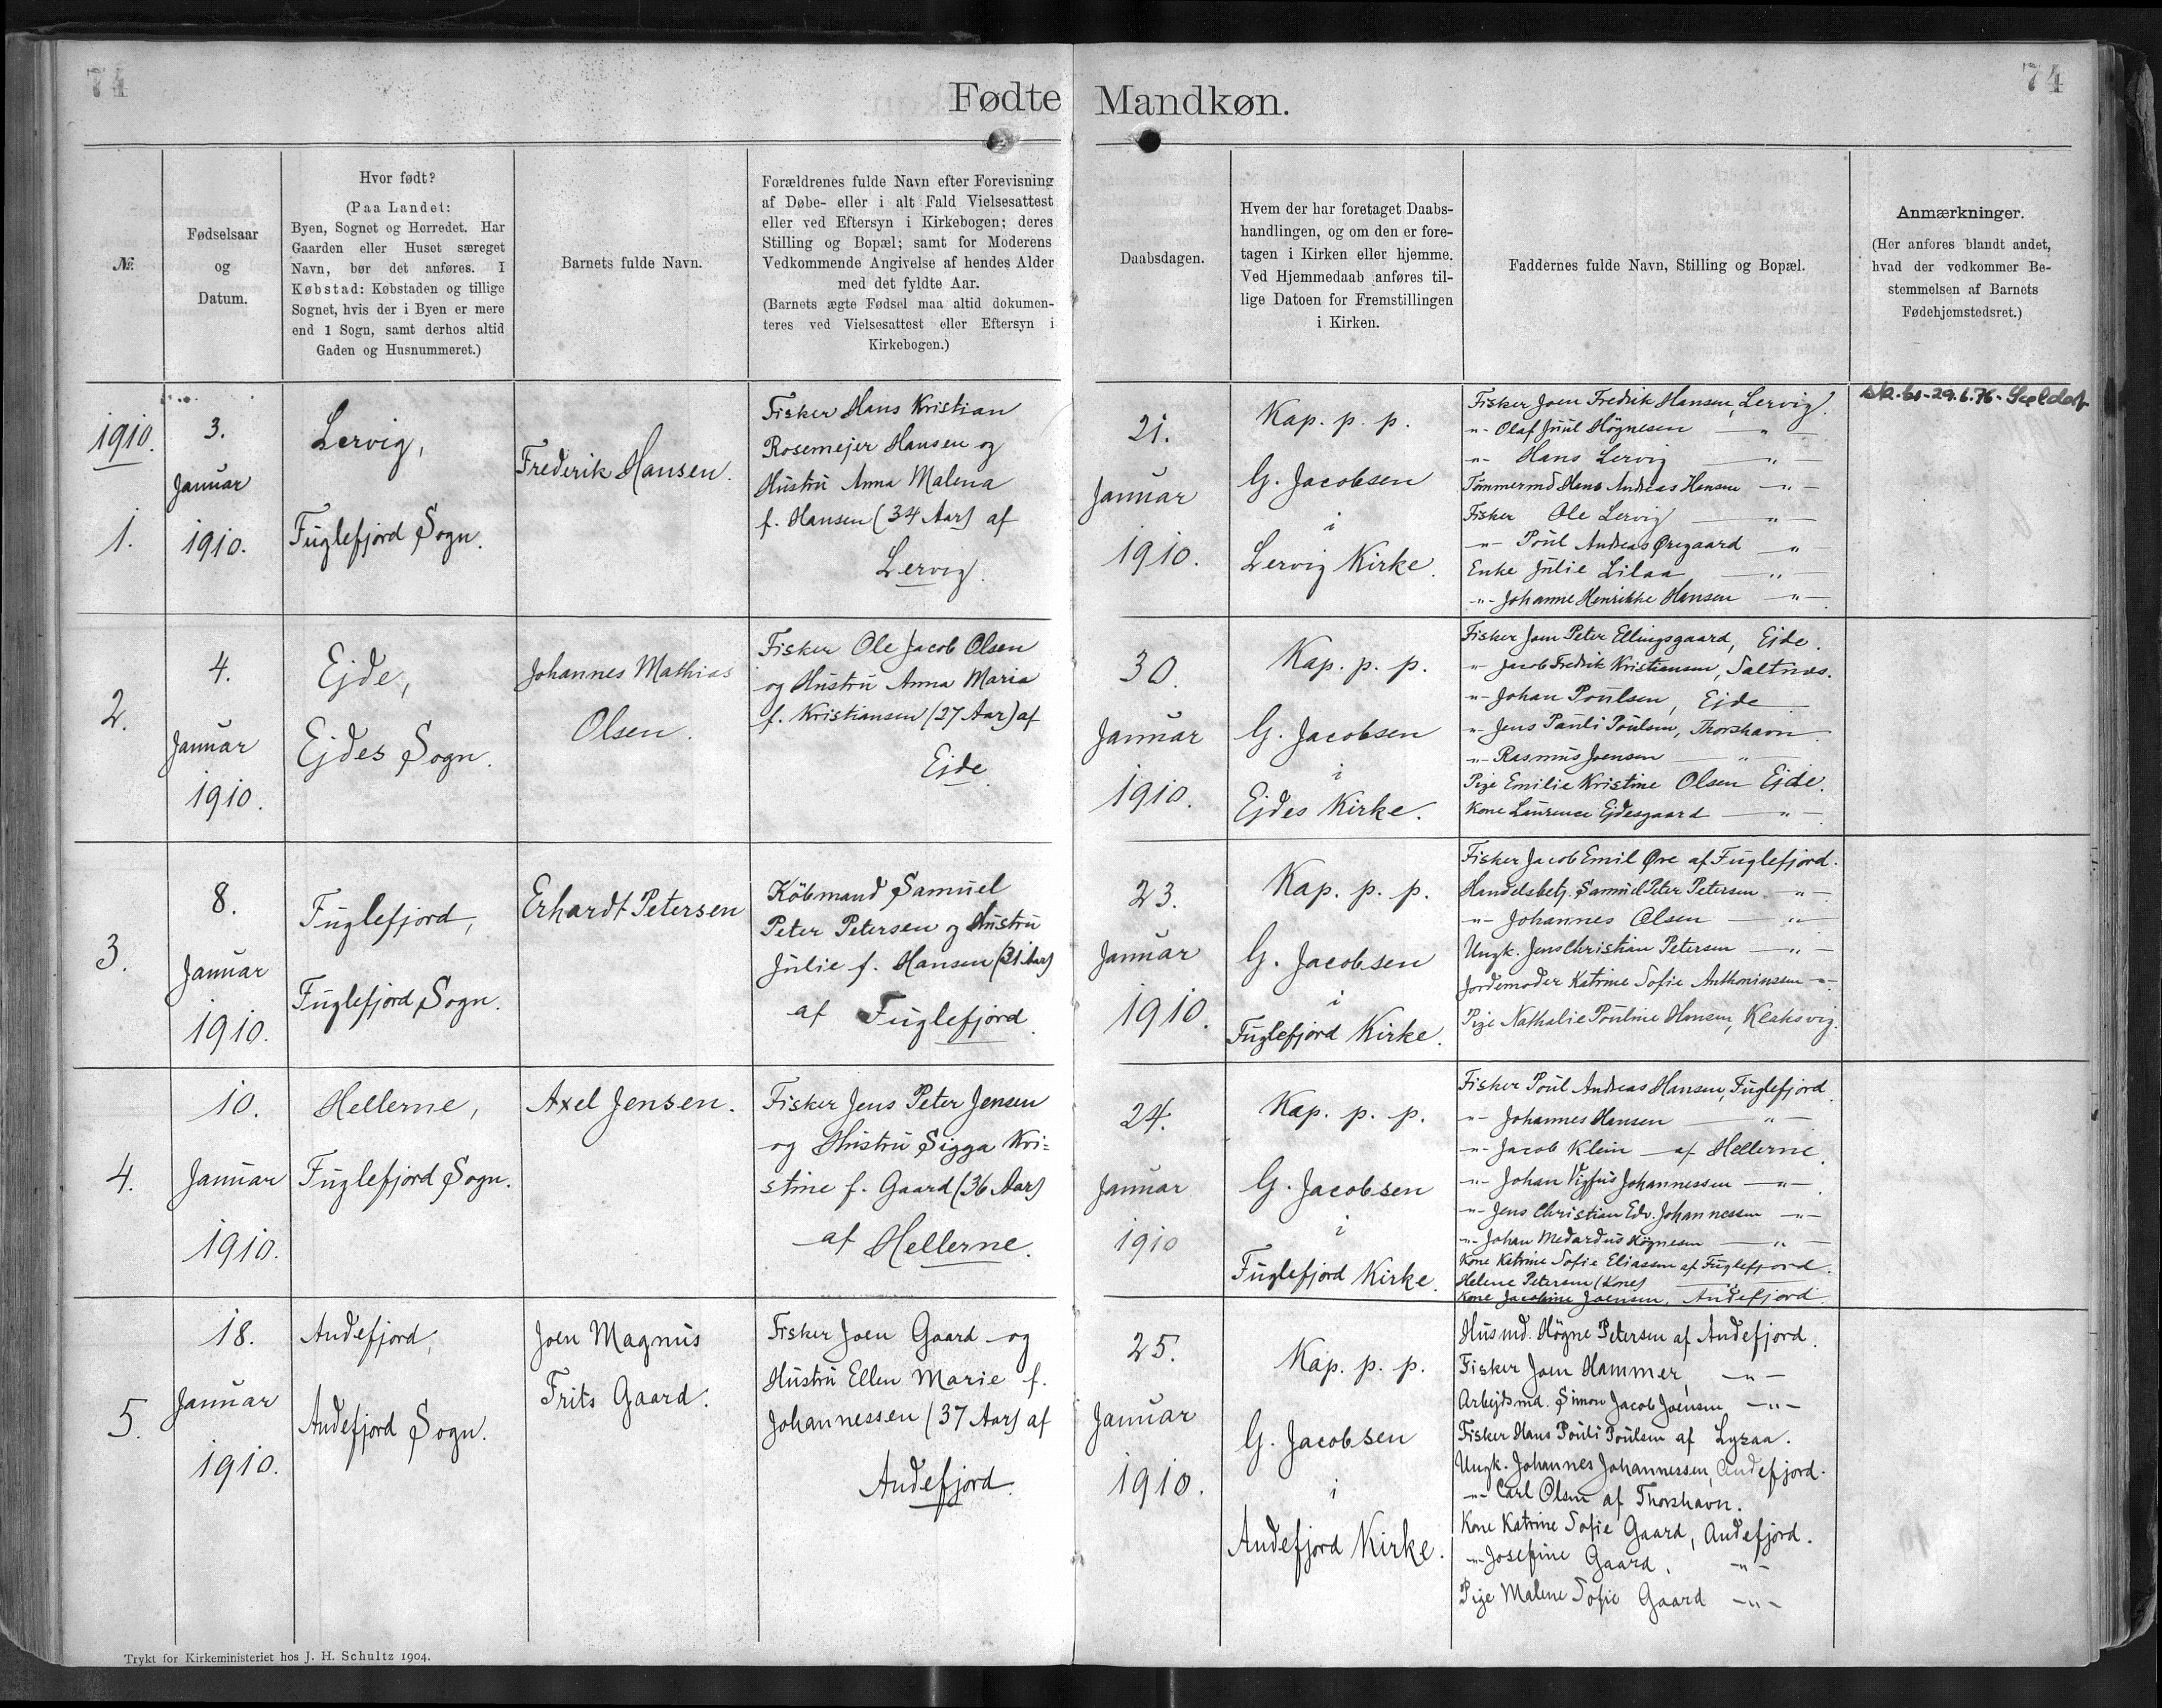 74
74
Fødte Mandkøn.
№
Fødselsaar
og
Datum.
Hvor født?
(Paa Landet:
Byen, Sognet og Herredet. Har
Gaarden eller Huset særeget
Navn, bør det anføres. I
Købstad: Købstaden og tillige
Sognet, hvis der i Byen er mere
end 1 Sogn, samt derhos altid
Gaden og Husnummeret.)
Barnets fulde Navn.
Forældrenes fulde Navn efter Forevisning
af Døbe- eller i alt Fald Vielsesattest
eller ved Eftersyn i Kirkebogen; deres
Stilling og Bopæl; samt for Moderens
Vedkommende Angivelse af hendes Alder
med det fyldte Aar.
(Barnets ægte Fødsel maa altid dokumen-
teres ved Vielsesattest eller Eftersyn i
Kirkebogen.)
Daabsdagen.
Hvem der har foretaget Daabs-
handlingen, og om den er fore-
tagen i Kirken eller hjemme.
Ved Hjemmedaab anføres til-
lige Datoen for Fremstillingen
i Kirken.
Faddernes fulde Navn, Stilling og Bopæl.
Anmærkninger.
(Her anføres blandt andet,
hvad der vedkommer Be-
stemmelsen af Barnets
Fødehjemstedsret.)
1910.
1.
3.
Januar
1910.
Lervig,
Fuglefjord Sogn.
Frederik Hansen.
Fisker Hans Kristian
Rosemejer Hansen og
Hustru Anna Malena
f. Hansen (34 Aar) af
Lervig.
21.
Januar
1910.
Kap. p. p.
G. Jacobsen
i
Lervig Kirke.
Fisker Joen Fredrik Hansen, Lervig.
-"- Olaf Juul Högnesen -"-
-"- Hans Lervig -"-
Tømmermd Hans Andreas Hansen -"-
Fisker Ole Lervig -"-
-"- Poul Andreas Øregaard -"-
Enke Julie Lilaa -"-
-"- Johanne Henrikke Hansen -"-
29.6.76
2.
4.
Januar
1910.
Ejde,
Ejdes Sogn.
Johannes Mathias
Olsen.
Fisker Ole Jacob Olsen
og Hustru Anna Maria
f. Kristiansen (27 Aar) af
Ejde
30.
Januar
1910.
Kap. p. p.
G. Jacobsen
i
Ejdes Kirke.
Fisker Joen Peter Ellingsgaard, Ejde.
-"- Jacob Fredrik Kristiansen, Saltnæs.
-"- Johan Poulsen, Ejde
-"- Jens Pauli Poulsen, Thorshavn
-"- Rasmus Joensen -"-
Pige Emilie Kristine Olsen Ejde.
Kone Laurence Ejdesgaard -"-
3.
8.
Januar
1910.
Fuglefjord,
Fuglefjord Sogn.
Erhardt Petersen
Købmand Samuel
Peter Petersen og Hustru
Julie f. Hansen (31 Aar)
af Fuglefjord.
23.
Januar
1910.
Kap. p. p.
G. Jacobsen
i
Fuglefjord Kirke.
Fisker Jacob Emil Øre af Fuglefjord.
Handelsbetj. Samuel Peter Petersen -"-
-"- Johannes Olsen -"-
Ungk. Jens Christian Petersen -"-
Jordemoder Katrine Sofie Anthoniussen -"-
Pige Nathalie Pouline Hansen, Klaksvig.
4.
10.
Januar
1910.
Hellerne,
Fuglefjord Sogn.
Axel Jensen.
Fisker Jens Peter Jensen
og Hustru Sigga Kri=
stine f. Gaard (36 Aar)
af Hellerne.
24.
Januar
1910
Kap. p. p.
G. Jacobsen
i
Fuglefjord Kirke.
Fisker Poul Andreas Hansen, Fuglefjord.
-"- Johannes Hansen -"-
-"- Jacob Klein af Hellerne.
-"- Johan Vigfus Johannessen -"-
-"- Jens Christian Edv. Johannessen -"-
-"- Johan Medardus Högnesen -"-
Kone Katrine Sofie Eliassen af Fuglefjord.
Helene Petersen (Kone) -"-
Kone Jacobine Joensen, Andefjord.
5.
18.
Januar
1910.
Andefjord,
Andefjord Sogn.
Joen Magnus
Frits Gaard.
Fisker Joen Gaard og
Hustru Ellen Marie f.
Johannessen (37 Aar) af
Andefjord.
25.
Januar
1910.
Kap. p. p.
G. Jacobsen
i
Andefjord Kirke.
Husmd. Högne Petersen af Andefjord.
Fisker Joen Hammer, -"-
Arbejdsmd. Simon Jacob Joensen -"-
Fisker Hans Pouli Poulsen af
Ungk. Johannes Johannessen, Andefjord.
-"- Carl Olsen af Thorshavn.
Kone Katrine Sofie Gaard, Andefjord.
-"- Josefine Gaard. -"-
Pige Malene Sofie Gaard -"-
Trykt for Kirkeministeriet hos J. H. Schultz 1904.